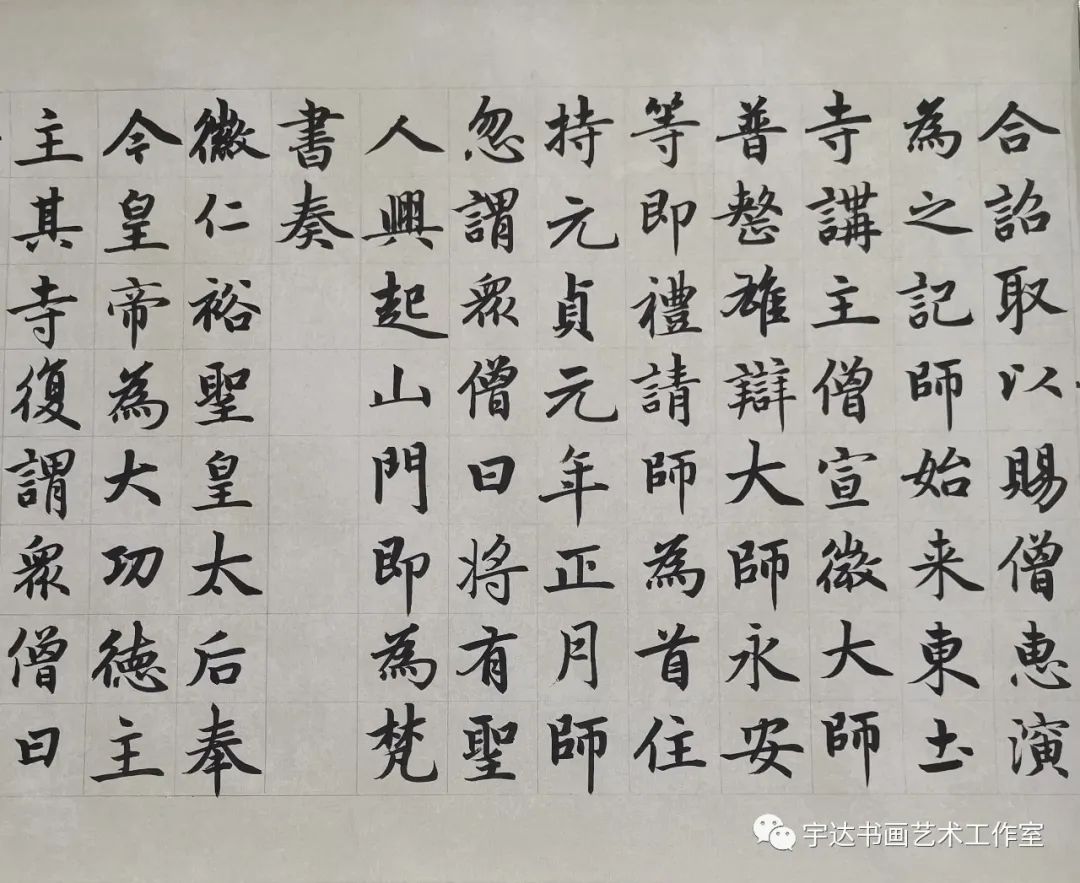 合詔取以賜僧惠演
為之記師始来東土
寺講主僧宣微大師
普整雄辯大師永安
等即禮請師為首住
持元貞元年正月師
忽謂眾僧曰將有聖
人興起山門即為梵
書奏
徽仁裕聖皇太后奉
今皇帝為大功德主
主其寺復謂眾僧曰
宇达书画艺术工作室